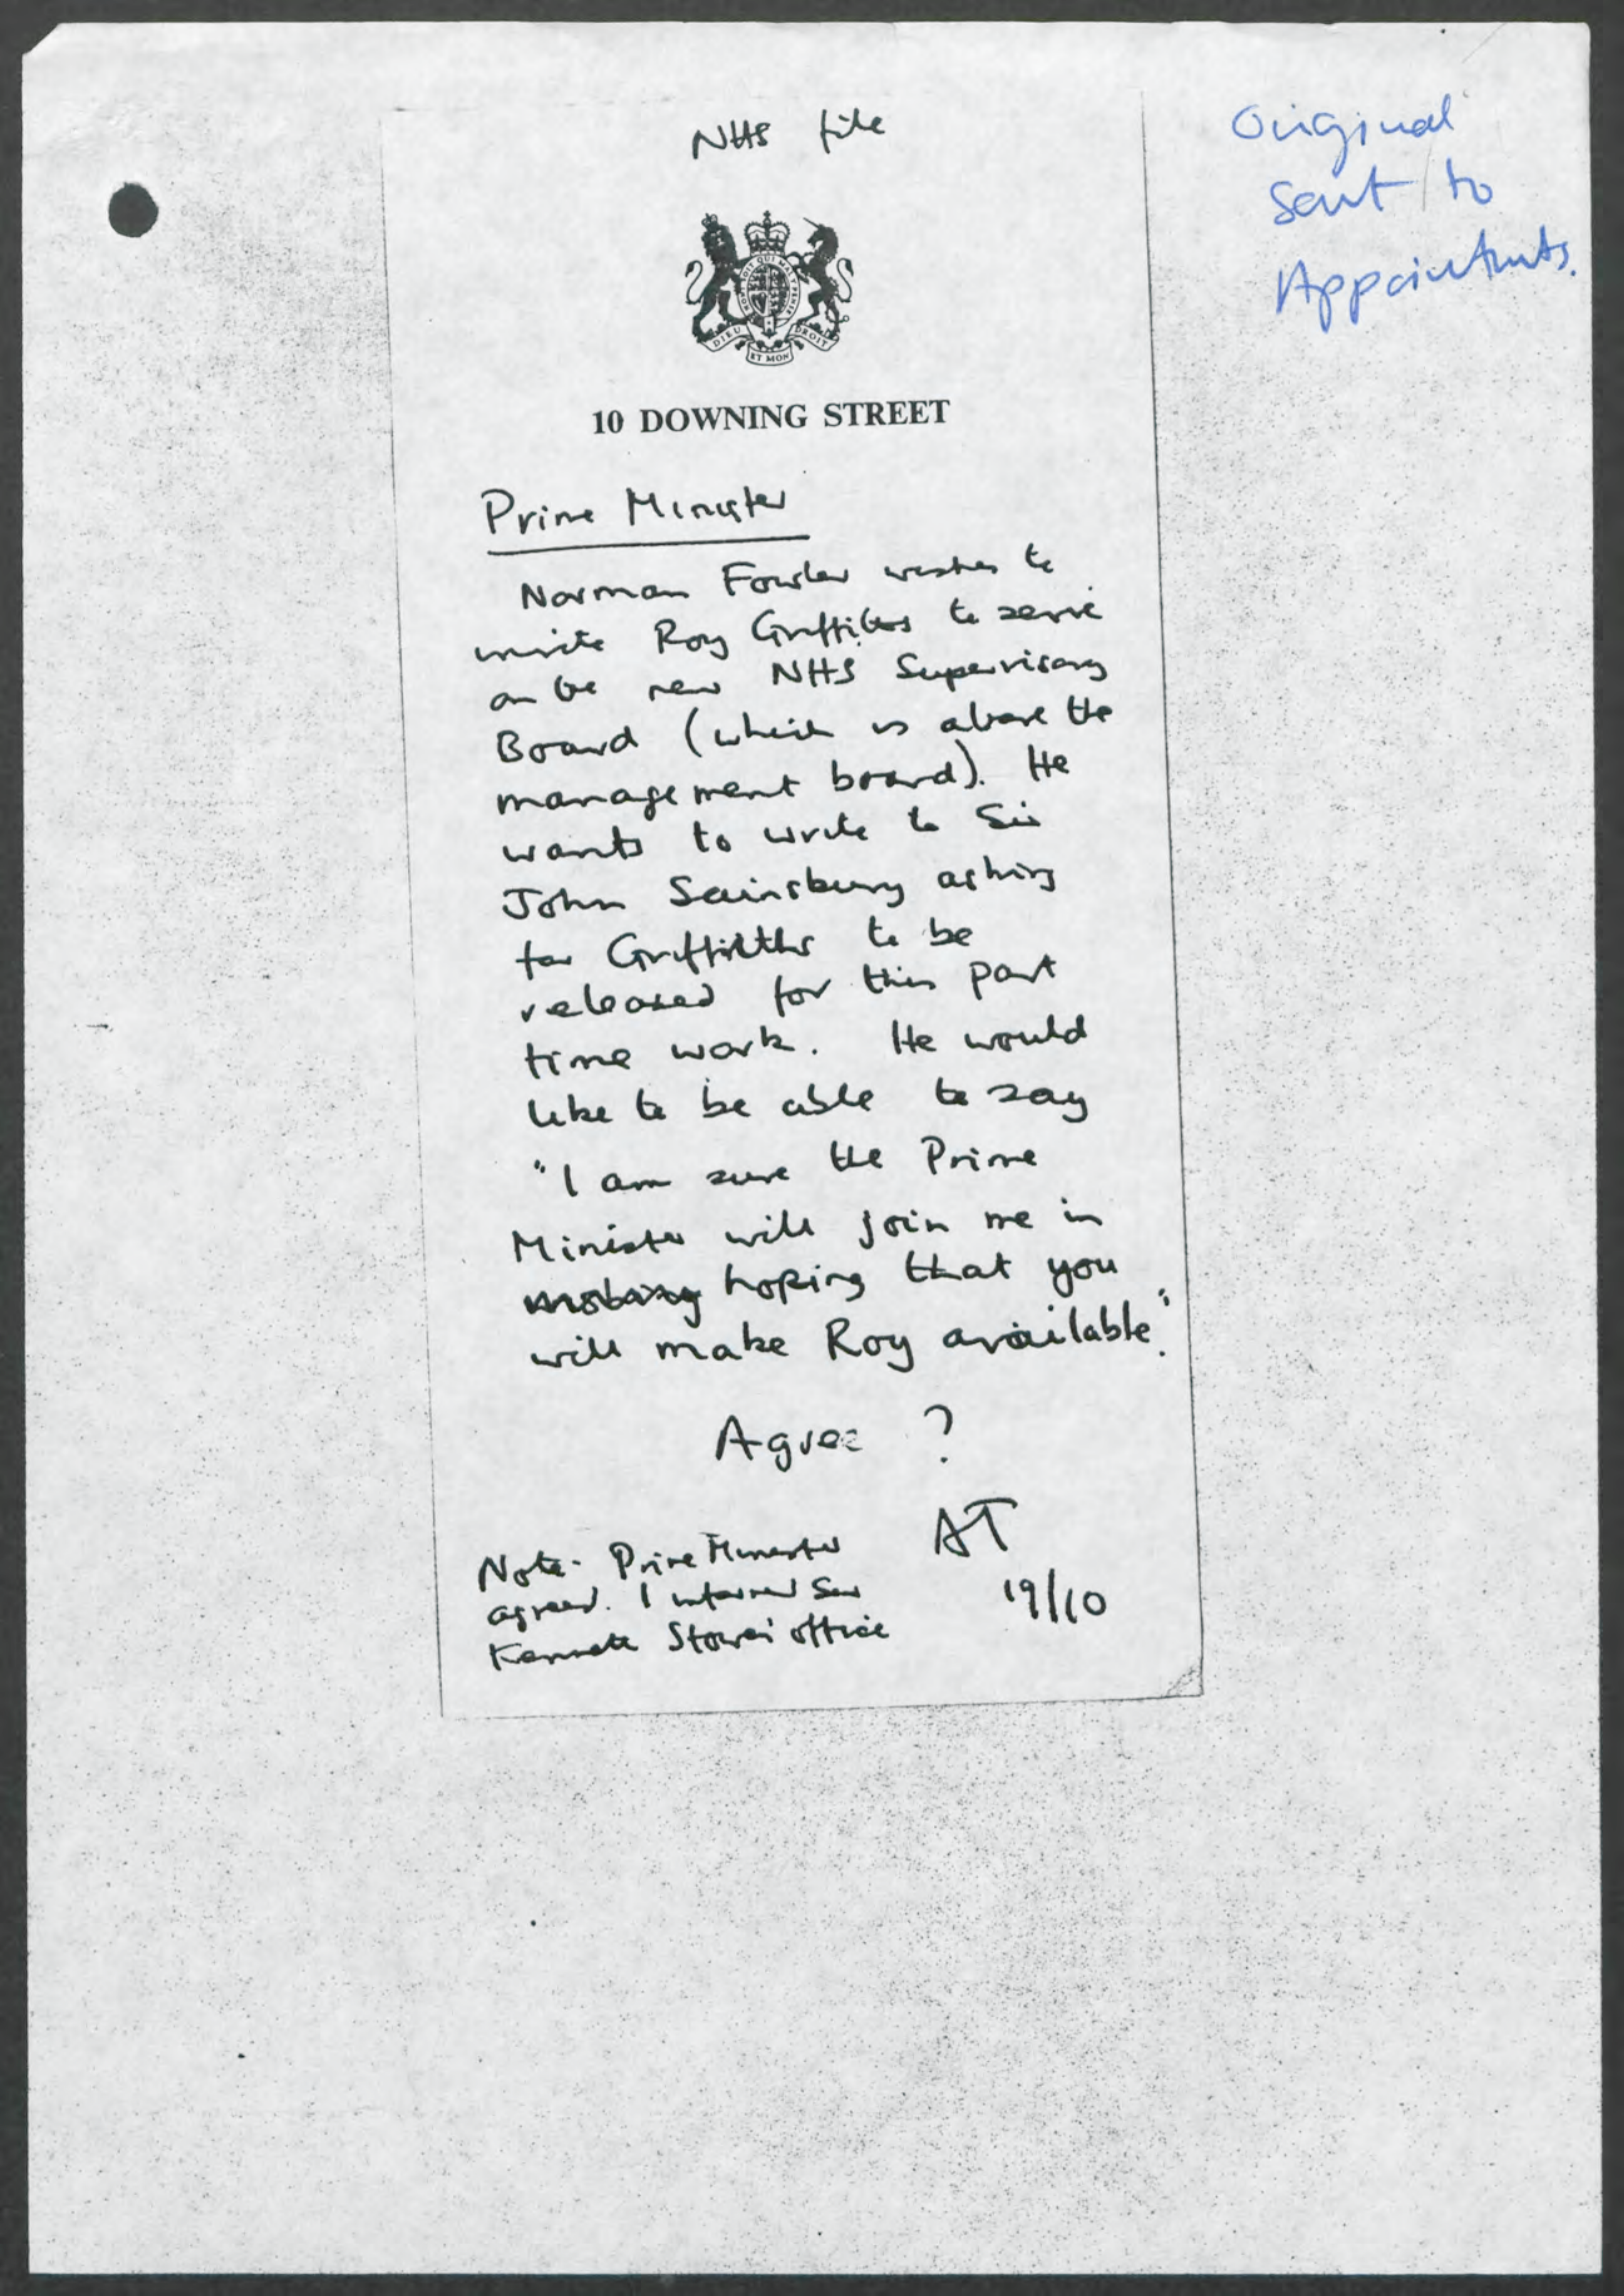 NHS file
Original
sent to
Appointments.
DIEU ET MON DROIT
10 DOWNING STREET
Prime Minister
Norman Fowler wishes to
invite Roy Griffiths to serve
on the new NHS Supervisory
Board (which is above the
management board). He
wants to write to Sir
John Sainsbury asking
for Griffiths to be
released for this part
time work. He would
like to be able to say
"I am sure the Prime
Minister will join me in
hoping that you
will make Roy available."
Agree ?
AT
19/10
Note - Prime Minister
agreed. I informed Sir
Kenneth Stowe's office